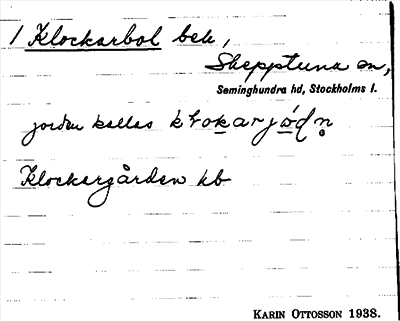 1 Klockarbol beb,
Skepptuna sn,
Seminghundra hd, Stockholms l.
jorden kallas
Klockargården kb
KARIN OTTOSSON 1938.